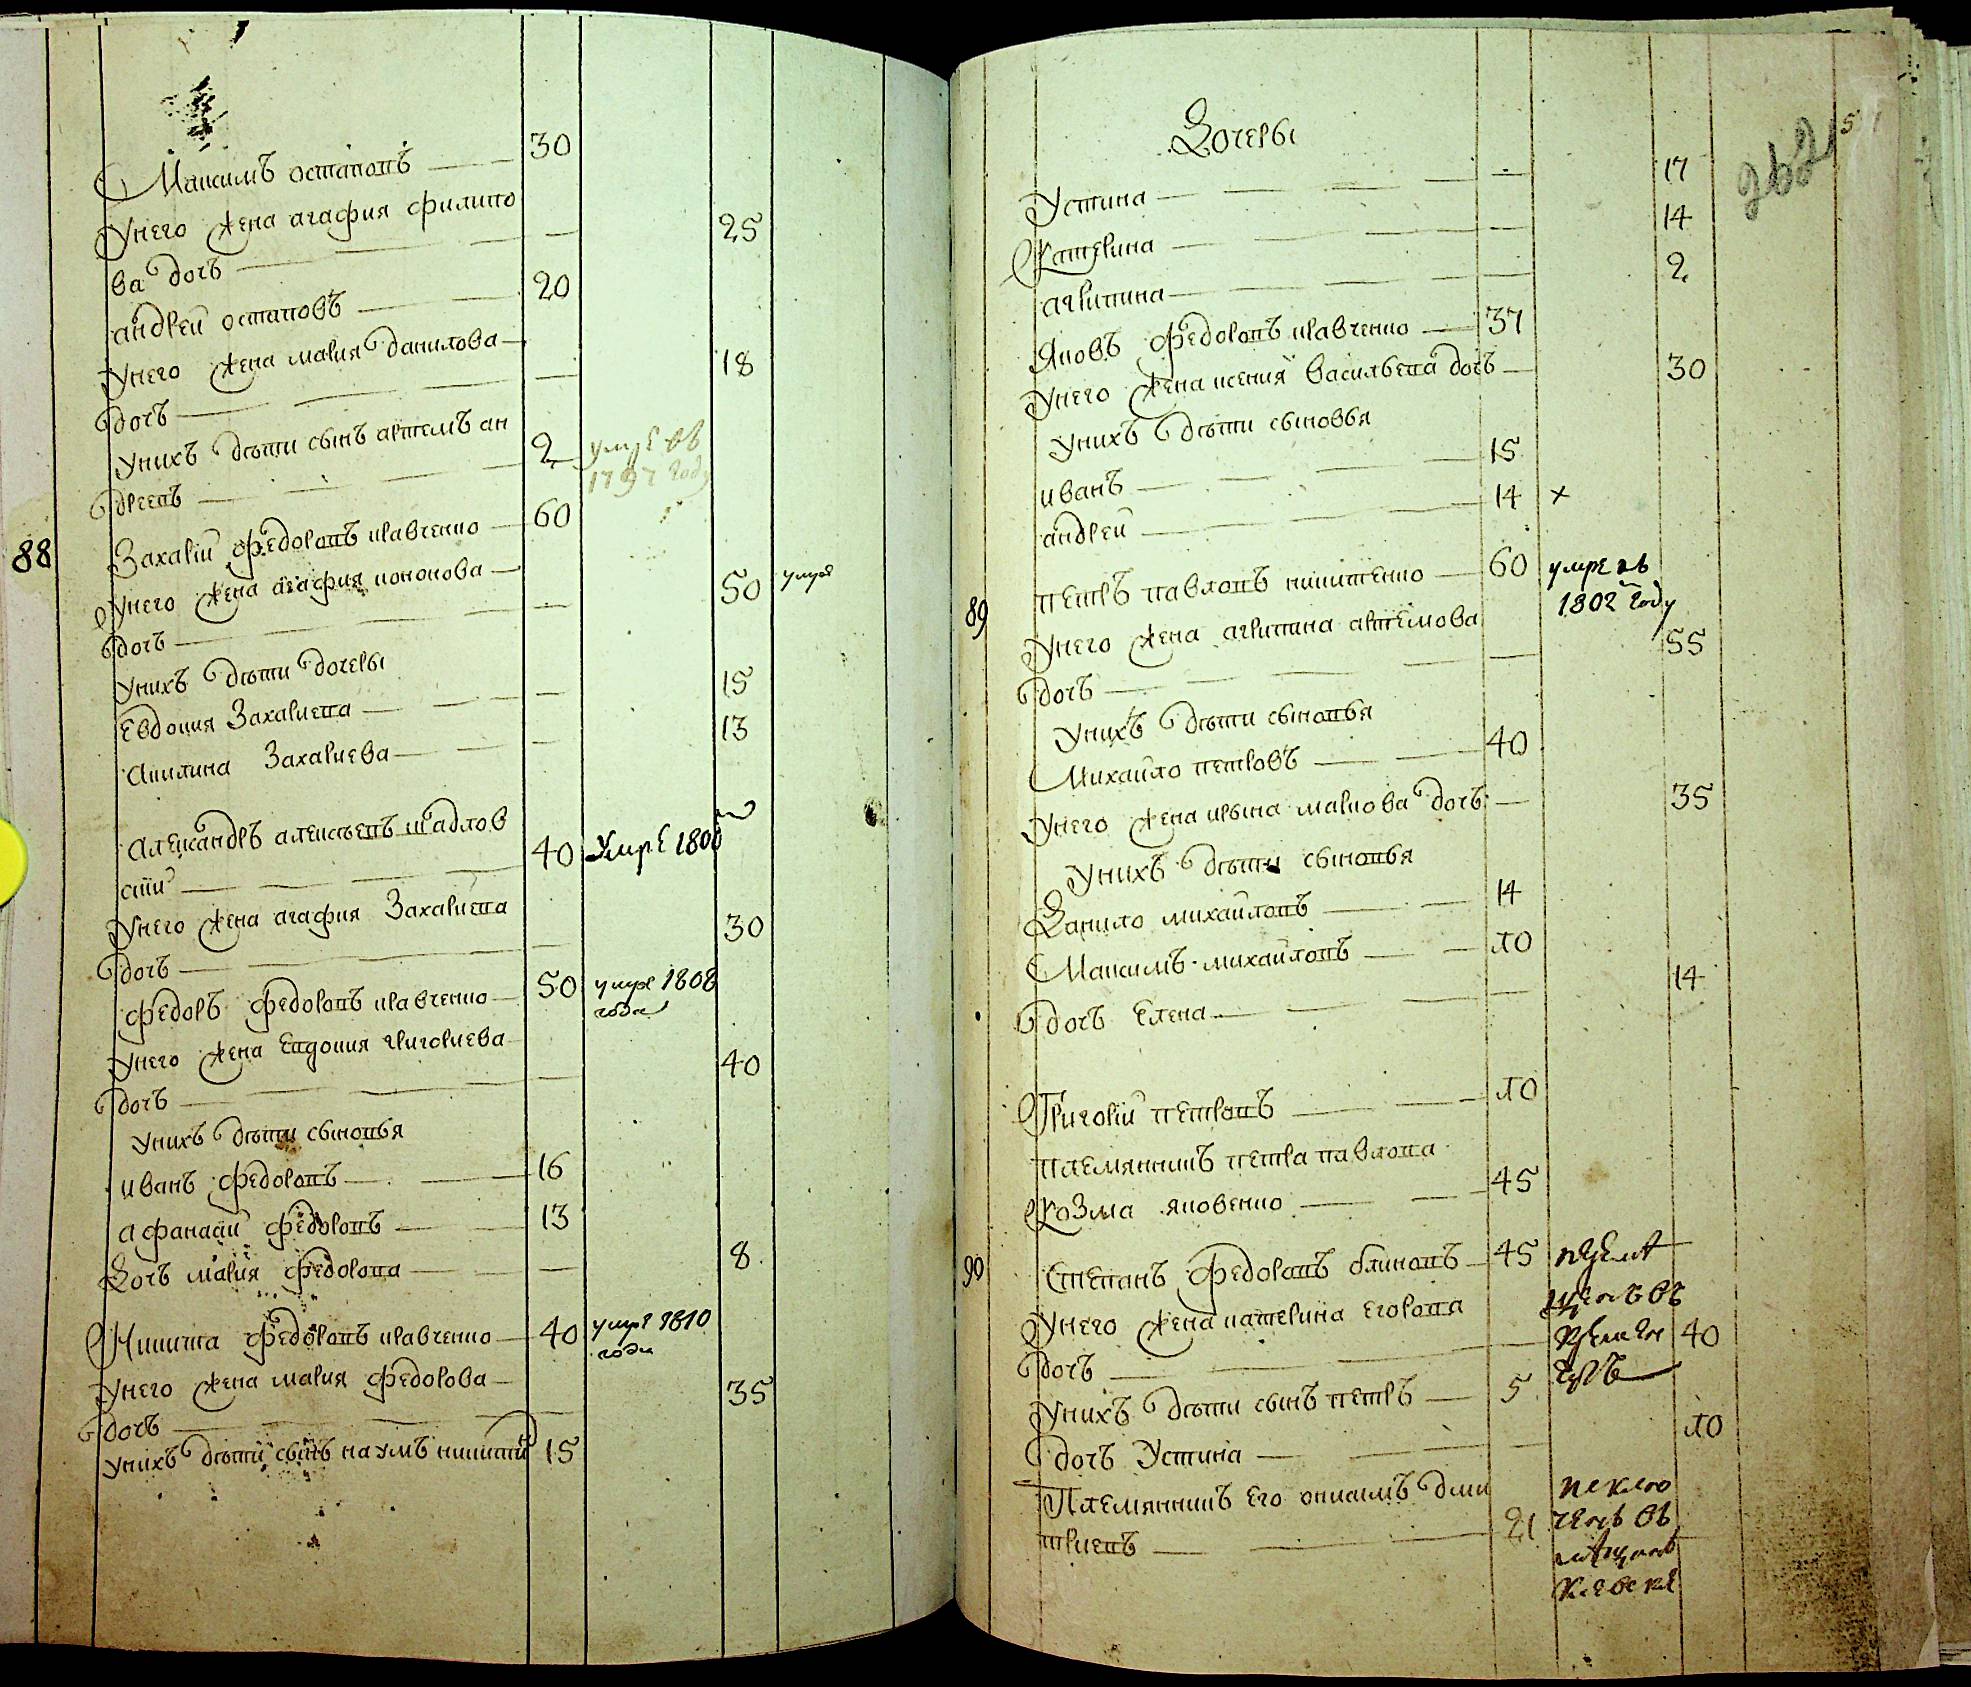 Максимъ остаповъ — 30
Унего жена агафия филипо
ва дочь — 25
андрей остаповъ — 20
Унего жена мария данилова —
дочь — 18
Унихъ дѣти сынъ артемъ ан
дреевъ — 2 умре въ
1797 году
88 Захарий федоровъ кравченко — 60
Унего жена агафия кононова —
дочь — 50 умре
Унихъ дѣти дочеры
Евдокия Захариева — 15
Акилина Захариева — 13
Александръ алексѣевъ шадлов
ский — 40 Умре 1800
Унего жена агафия Захариева
дочь — 30
федоръ федоровъ кравченко — 50 умре 1808
года
Унего жена Евдокия григориева
дочь — 40
Унихъ дѣти сыновья
иванъ федоровъ — 16
афанасий федоровъ — 13
Дочь мария федорова — 8
Никита федоровъ кравченко — 40 умре 1810
года
Унего жена мария федорова —
дочь — 35
Унихъ дѣти сынъ наумъ никитин 15
Дочеры
5
Устина — 17
Катерина — 14
агрипина — 2
Яковъ федоровъ кравченко — 37
Унего жена ксения васильева дочь — 30
Унихъ дѣти сыновья
иванъ — 15
андрей — 14 x
89 петръ павловъ никитенко — 60 умре въ
1802 году
Унего жена агрипина артемова
дочь — 55
Унихъ дѣти сыновья
Михайло петровъ — 40
Унего жена ирына маркова дочь — 35
Унихъ дѣти сыновья
Данило михайловъ — 14
Максимъ михайловъ — 10
дочь Елена — 14
Григорий петровъ — 10
племянникъ петра павлова
Козма яковенко — 45
90 Степанъ федоровъ блиновъ — 45
Унего жена катерина егорова
дочь — 40
Унихъ дѣти сынъ петръ — 5
дочь Устина — 10
Племянникъ его онисимъ дми
триевъ — 21